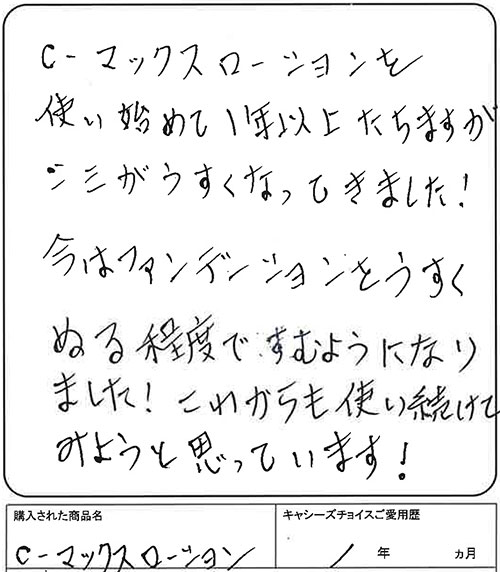 C-マックスローションを
使い始めて1年以上たちますが
シミがうすくなってきました!
今はファンデンションをうすく
ぬる程度ですむようになり
ました! これからも使い続けて
みようと思っています!
購入された商品名 キャシーズチョイスご愛用歴
C-マックスローション 1年 ヵ月